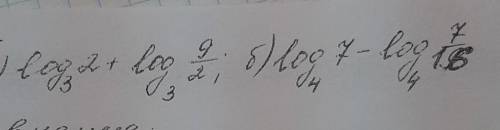 ) log₃ 2 + log₃ 9/2; б) log₄ 7 - log₄ 7/16